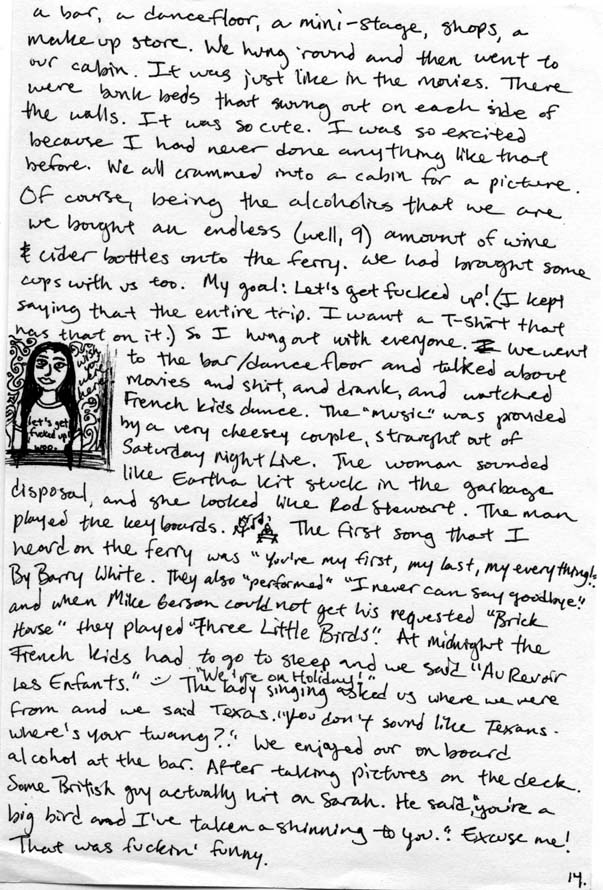 a bar, a dancefloor, a mini-stage, shops, a
make up store. We hung 'round and then went to
our cabin. It was just like in the movies. There
were bunk beds that swung out on each side of
the walls. It was so cute. I was so excited
because I had never done anything like that
before. We all crammed into a cabin for a picture.
Of course, being the alcoholics that we are
we bought an endless (well, 9) amount of wine
& cider bottles onto the ferry. We had brought some
cups with us too. My goal: Let's get fucked up! (I kept
saying that the entire trip. I want a T-shirt that
has that on it.) So I hung out with everyone. We went
wish you were here!
let's get fucked up! woo.
to the bar/dance floor and talked about
movies and shit, and drank, and watched
French kids dance. The "music" was provided
by a very cheesey couple, straught out of
Saturday Night Live. The woman sounded
like Eartha Kit stuck in the garbage
disposal, and she looked like Rod Stewart. The man
played the keyboards. The first song that I
heard on the ferry was "You're my first, my last, my everything!"
By Barry White. They also "performed" "I never can say goodbye."
and when Mike Gerson could not get his requested "Brick
House" they played "Three Little Birds". At midnight the
French kids had to go to sleep and we said "Au Revoir
Les Enfants."
"We're on Holiday!"
The lady singing asked us where we were
from and we said Texas. "You don't sound like Texans.
where's your twang?" We enjoyed our on board
alcohol at the bar. After taking pictures on the deck.
Some British guy actually hit on Sarah. He said, "you're a
big bird and I've taken a shinning to you." Excuse me!
That was fuckin' funny.
14.